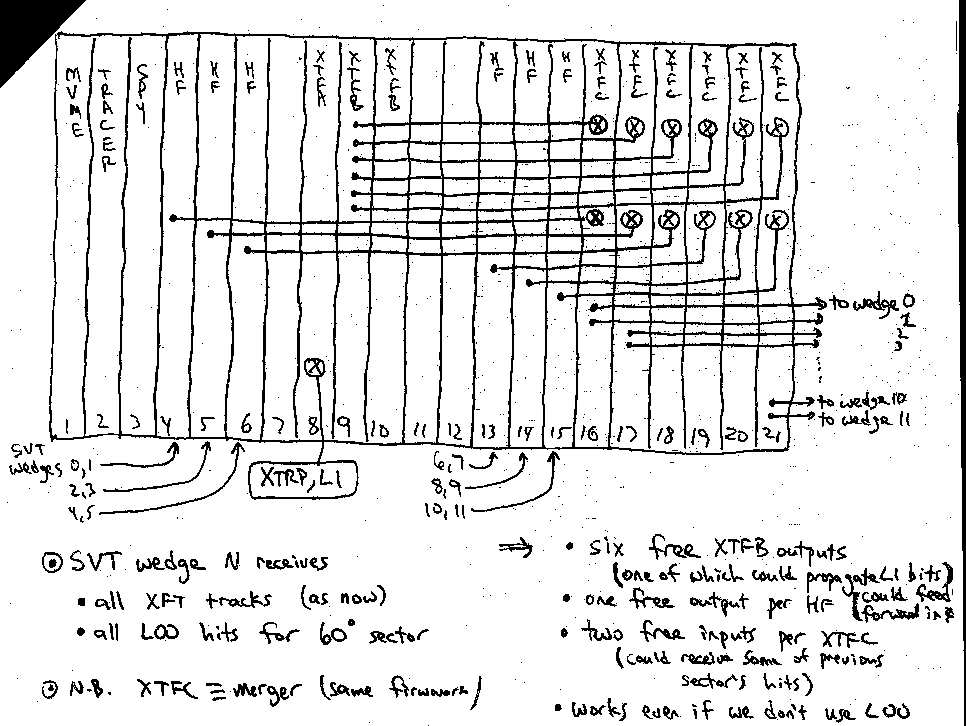 MVME TRACER SPY HF HF HF XTFA XTFB XTFB HF HF HF XTFC XTFC XTFC XTFC XTFC XTFC
to wedge 0
1
2
3
to wedge 10
to wedge 11
1 2 3 4 5 6 7 8 9 10 11 12 13 14 15 16 17 18 19 20 21
SVT
wedges 0,1
2,3
4,5
XTRP, L1
6,7
8,9
10,11
SVT wedge N receives
• all XFT tracks (as now)
• all L00 hits for 60° sector
N.B. XTFC ≡ merger (same firmware)
⇒ • six free XTFB outputs
(one of which could propagate L1 bits)
• one free output per HF (could feed
forward in φ
• two free inputs per XTFC
(could receive some of previous
sector's hits)
• works even if we don't use L00